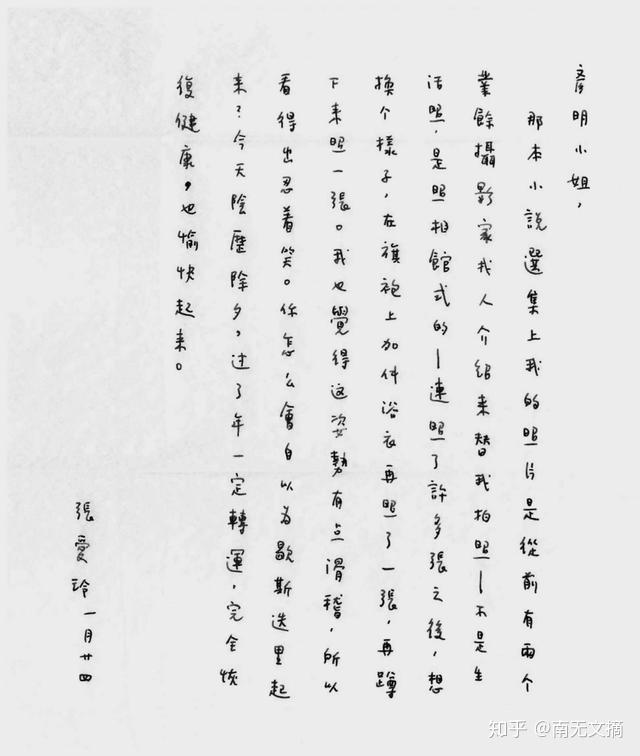 彥明小姐，
那本小說選集上我的照片是從前有兩个
業餘攝影家找人介紹来替我拍照——不是生
活照，是照相館式的——連照了許多張之後，想
換个樣子，在旗袍上加件浴衣再照了一張，再蹲
下来照一張。我也覺得这姿勢有点滑稽，所以
看得出忍着笑。你怎么會自以为歇斯迭里起
来？今天陰歷除夕，过了年一定轉運，完全恢
復健康，也愉快起来。
張愛玲 一月廿四
知乎 @南无文摘